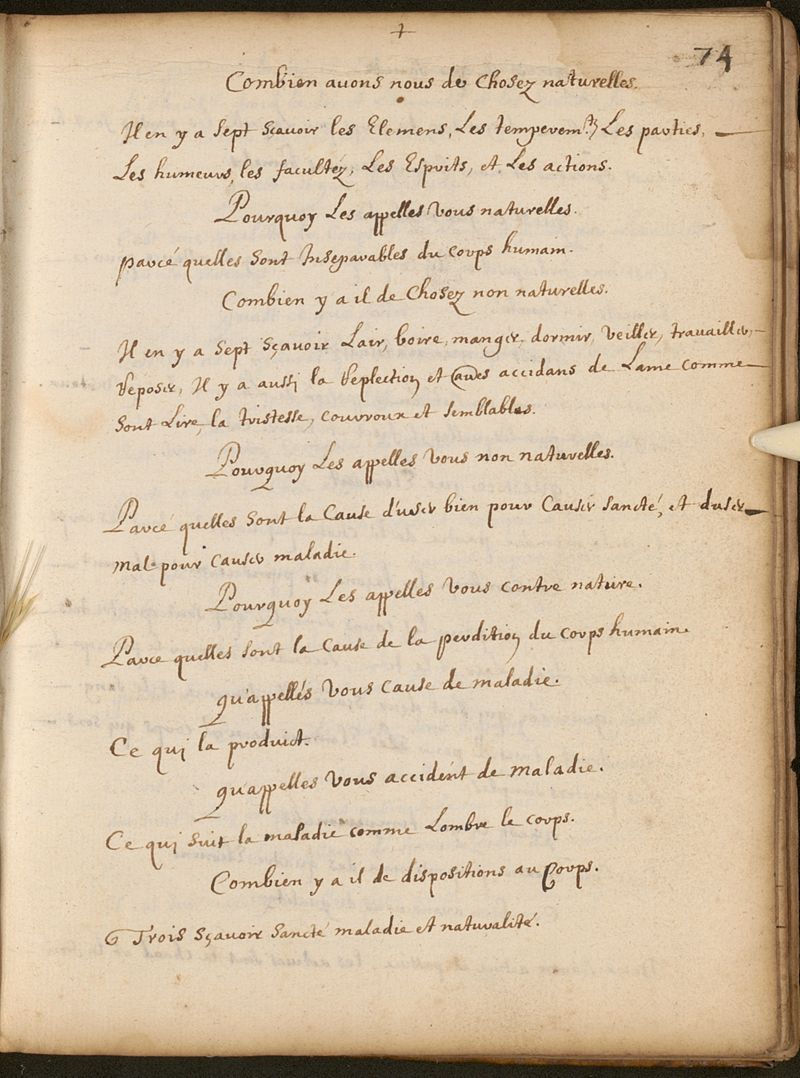 +
74
Combien avons nous de Chosez naturelles.
Il en y a Sept sçavoir les Elemens, Les temperem.ts Les parties,
Les humeurs, les facultéz, Les Esprits, et Les actions.
Pourquoy Les appelles vous naturelles.
parcé quelles sont Inseparables du corps humain.
Combien y a il de Chosez non naturelles.
Il en y a sept sçavoir Lair, boire, manger, dormir, veiller, travailler,
reposer, Il y a aussi la repletion et accidans de Lame comme
sont Lire, la tristesse, courroux et semblables.
Pourquoy Les appelles vous non naturelles.
Parcé quelles sont la Cause d'user bien pour Causer sancté, et duser
mal pour causer maladie.
Pourquoy Les appelles vous contre nature.
Parce quelles sont la Cause de la perdition du corps humain.
qu'appellés vous cause de maladie.
Ce qui la produict.
qu'appelles vous accident de maladie.
Ce qui suit la maladie comme Lombre le corps.
Combien y a il de dispositions au Corps.
Trois sçavoir sancté maladie et naturalité.